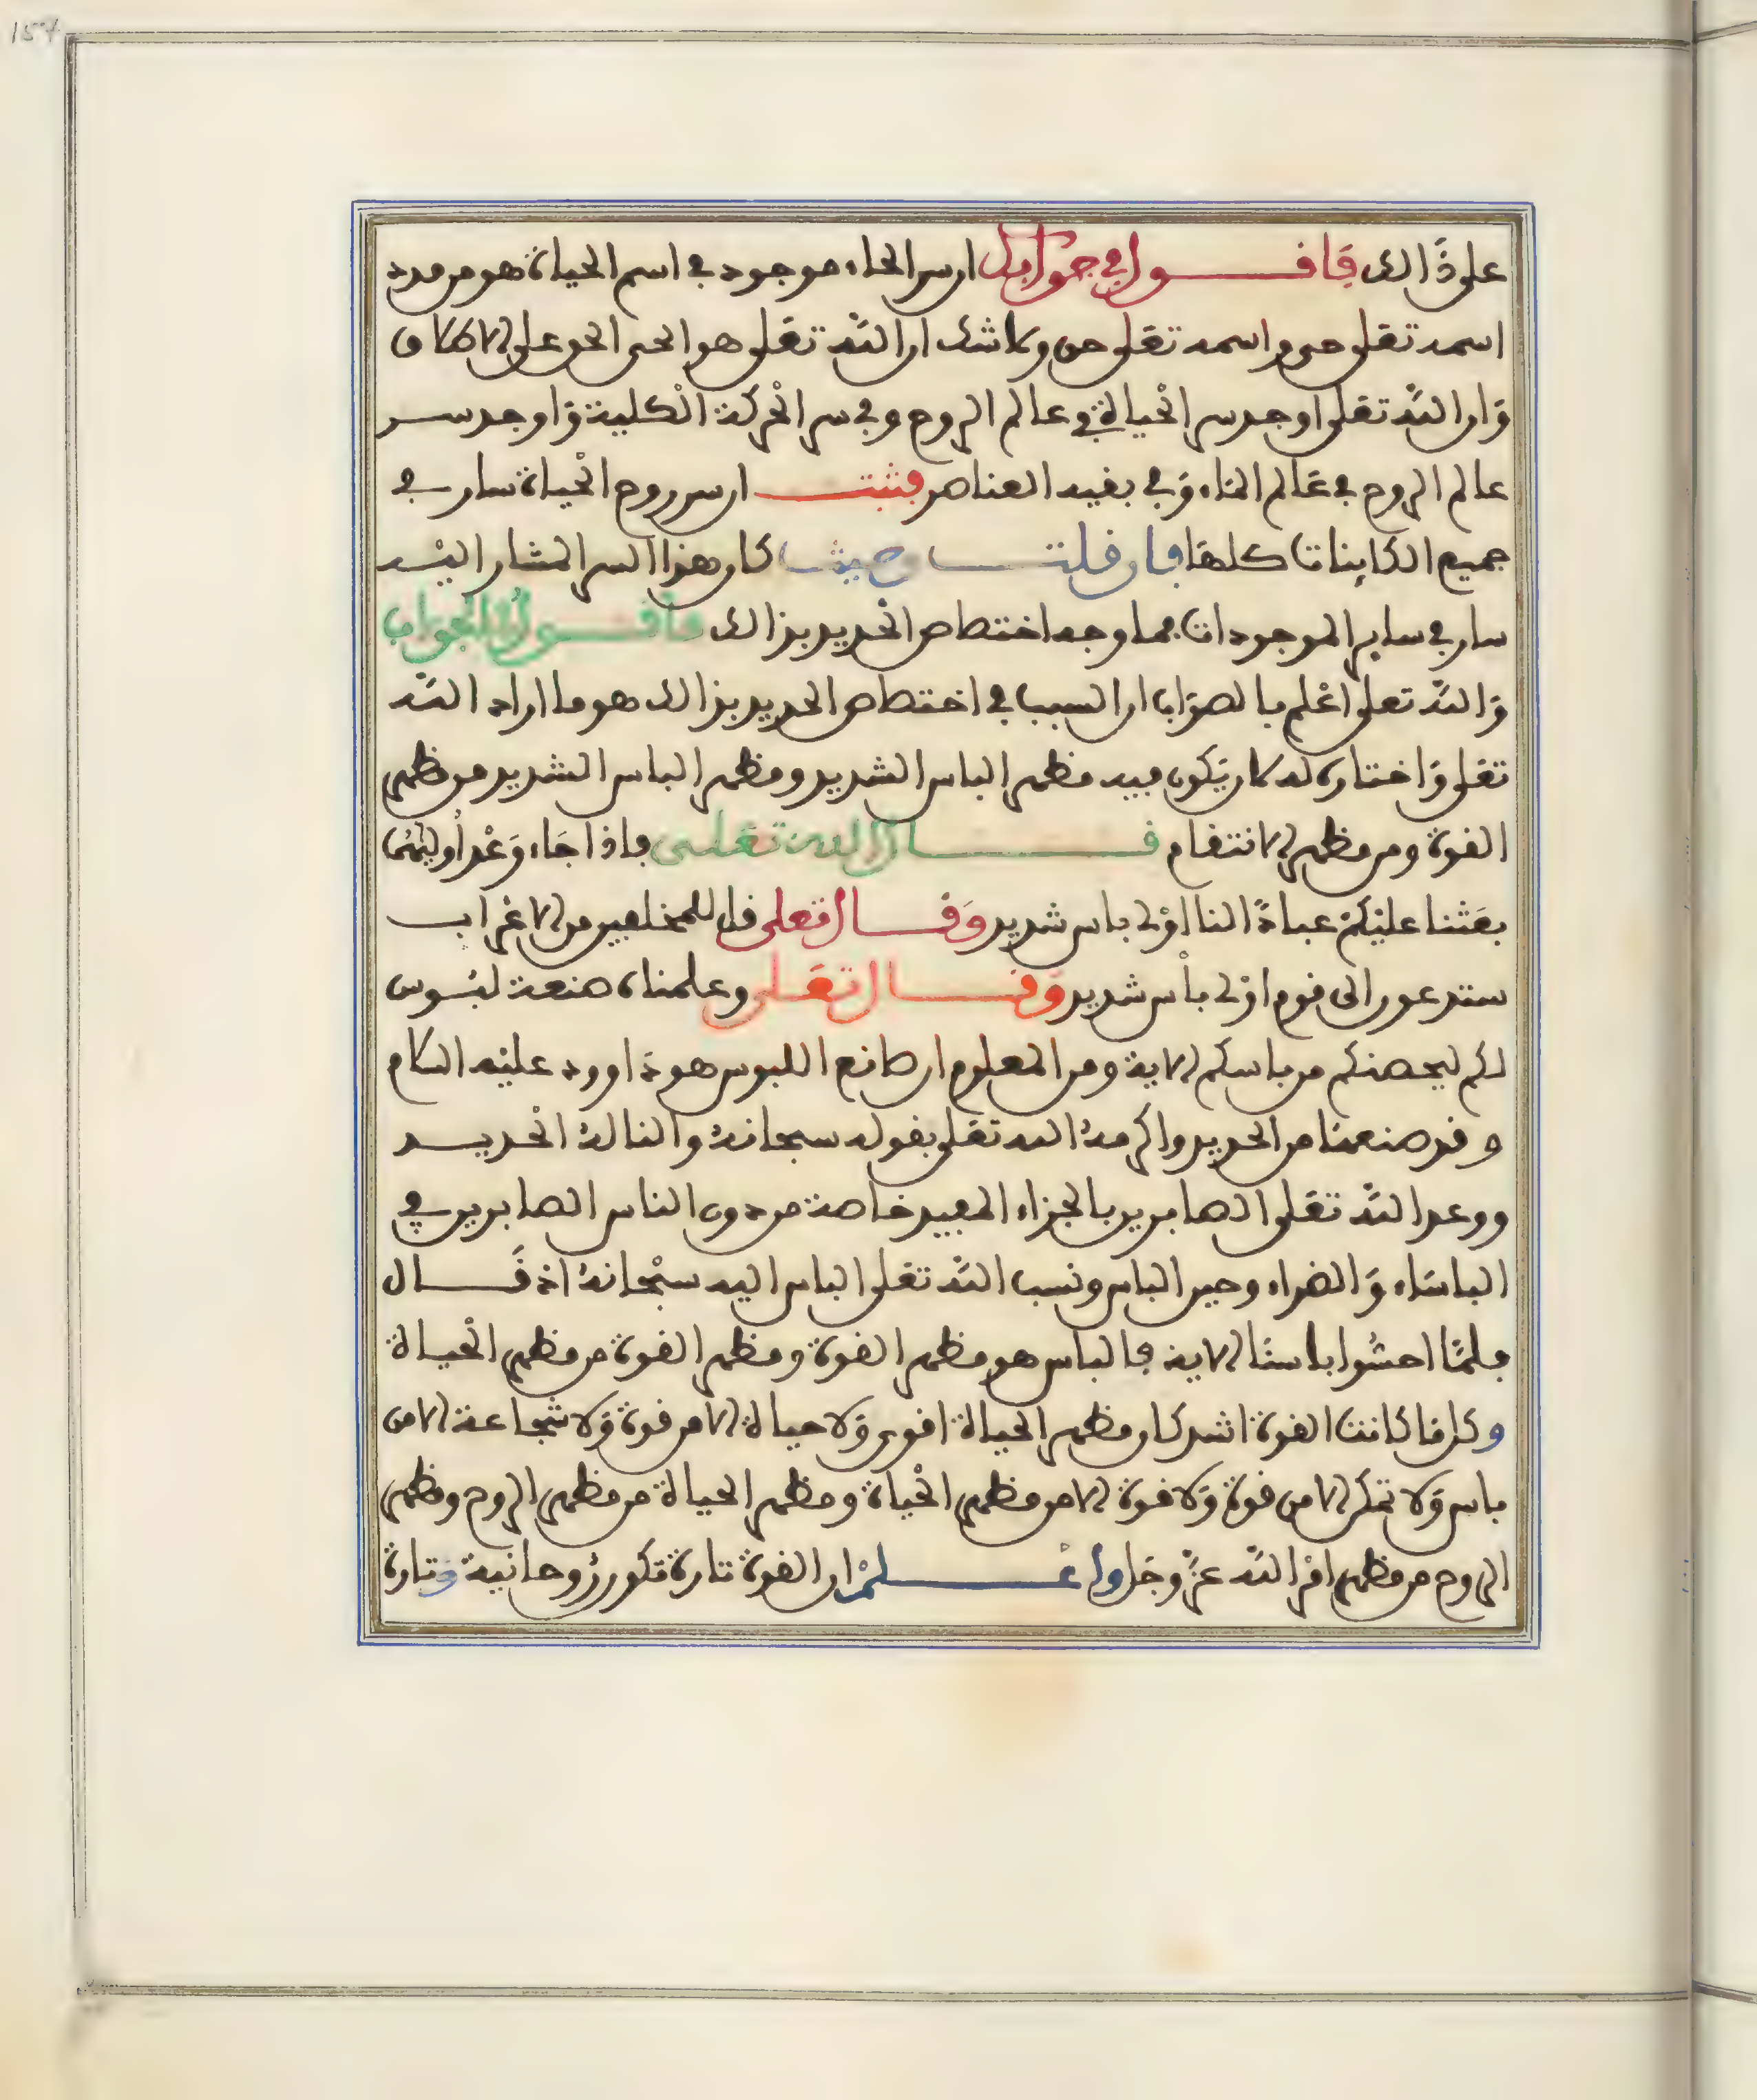 على ذالك فافول في جوابك ان سر الحاء موجود في اسم الحياة هو من مدد
اسمه تعلى حي واسمه تعلى حي ولا شك ان الله تعلى هو الحي الحق على الاطلاق
وان الله تعلى اوجد سر الحياة في عالم الروح وفي سر الحركة الكلية واوجد سر
عالم الروح في عالم الماء وفي بقية العناصر فثبت ان سر روح الحياة سار في
جميع الكاينات كلها فان قلت وحيث كان هذا السر المشار اليه
سار في ساير الموجودات فما وجه اختصاص الحديد بذالك فاقول الجواب
والله تعلى اعلم بالصواب ان السبب في اختصاص الحديد بذالك هو ما اراده الله
تعلى واختاره له لان يكون فيه مظهر الباس الشديد ومظهر الباس الشديد من مظهر
القوة ومن مظهر الانتقام قال الله تعلى فاذا جاء وعد أوليهما
بعثنا عليكم عبادا لنا اولى باس شديد وقال تعلى قل للمخلفين من الاعراب
ستدعون الى قوم اولى بأس شديد وقال تعلى وعلمناه صنعة لبوس
لكم ليحصنكم من باسكم الاية ومن المعلوم ان صانع اللبوس هو داوود عليه السلام
وقد صنعها من الحديد واكرمه الله تعلى بقوله سبحانه والنا له الحديد
ووعد الله تعلى الصابرين بالجزاء المعيد خاصة من دون الناس الصابرين في
الباساء والضراء وحين الباس ونسب الله تعلى الباس اليه سبحانه اذ قال
فلما احسوا باسنا الاية فالباس هو مظهر القوة ومظهر القوة من مظهر الحياة
وكل ما كانت القوة اشد كان مظهر الحياة اقوى ولا حياة الا من قوة ولا شجاعة الا من
باس ولا تمكن الا من قوة ولا قوة الا من مظهر الحياة ومظهر الحياة من مظهر الروح ومظهر
الروح من مظهر امر الله عز وجل واعلم ان القوة تارة تكون روحانية وتارة